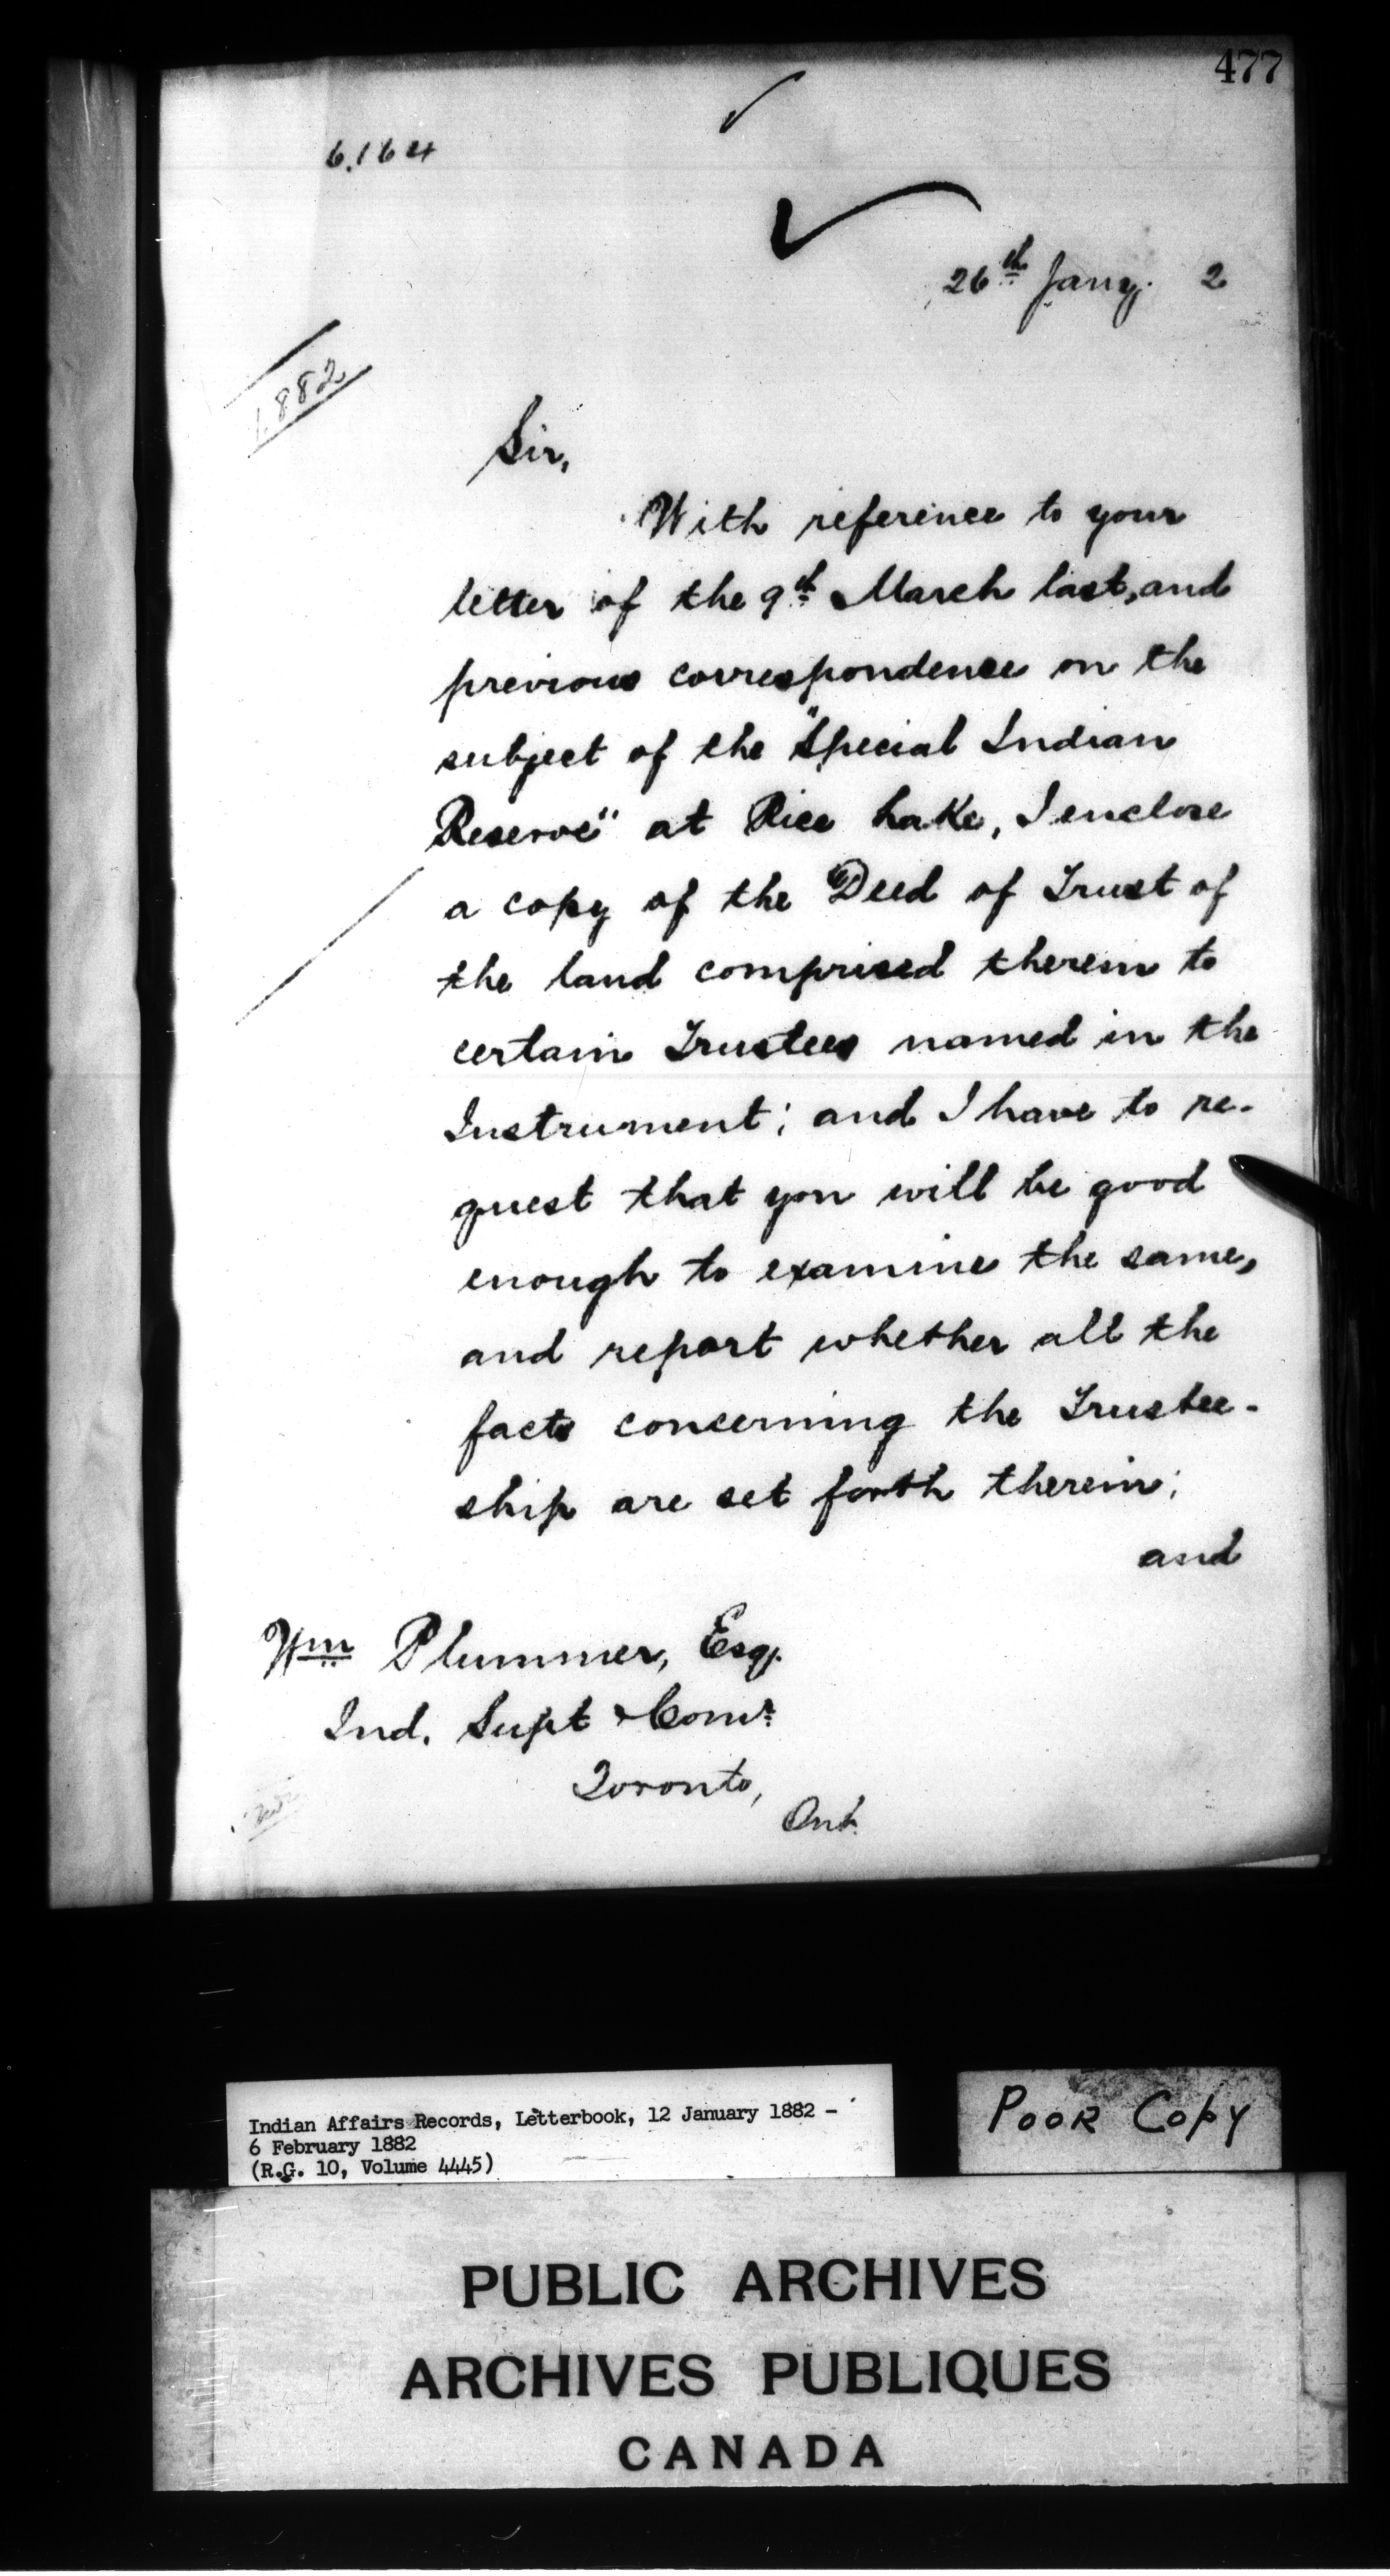 477
6.164
26th Jany. 2
1882
Sir,
With reference to your
letter of the 9th March last, and
previous correspondence on the
subject of the "Special Indian
Reserve" at Rice Lake, I enclose
a copy of the Deed of Trust of
the land comprised therein to
certain Trustees named in the
Instrument; and I have to re-
quest that you will be good
enough to examine the same,
and report whether all the
facts concerning the Trustee-
ship are set forth therein;
and
Wm Plummer, Esq.
Ind. Supt & Comr
Toronto,
Ont.
Indian Affairs Records, Letterbook, 12 January 1882 -
6 February 1882
(R.G. 10, Volume 4445)
POOR COPY
PUBLIC ARCHIVES
ARCHIVES PUBLIQUES
CANADA